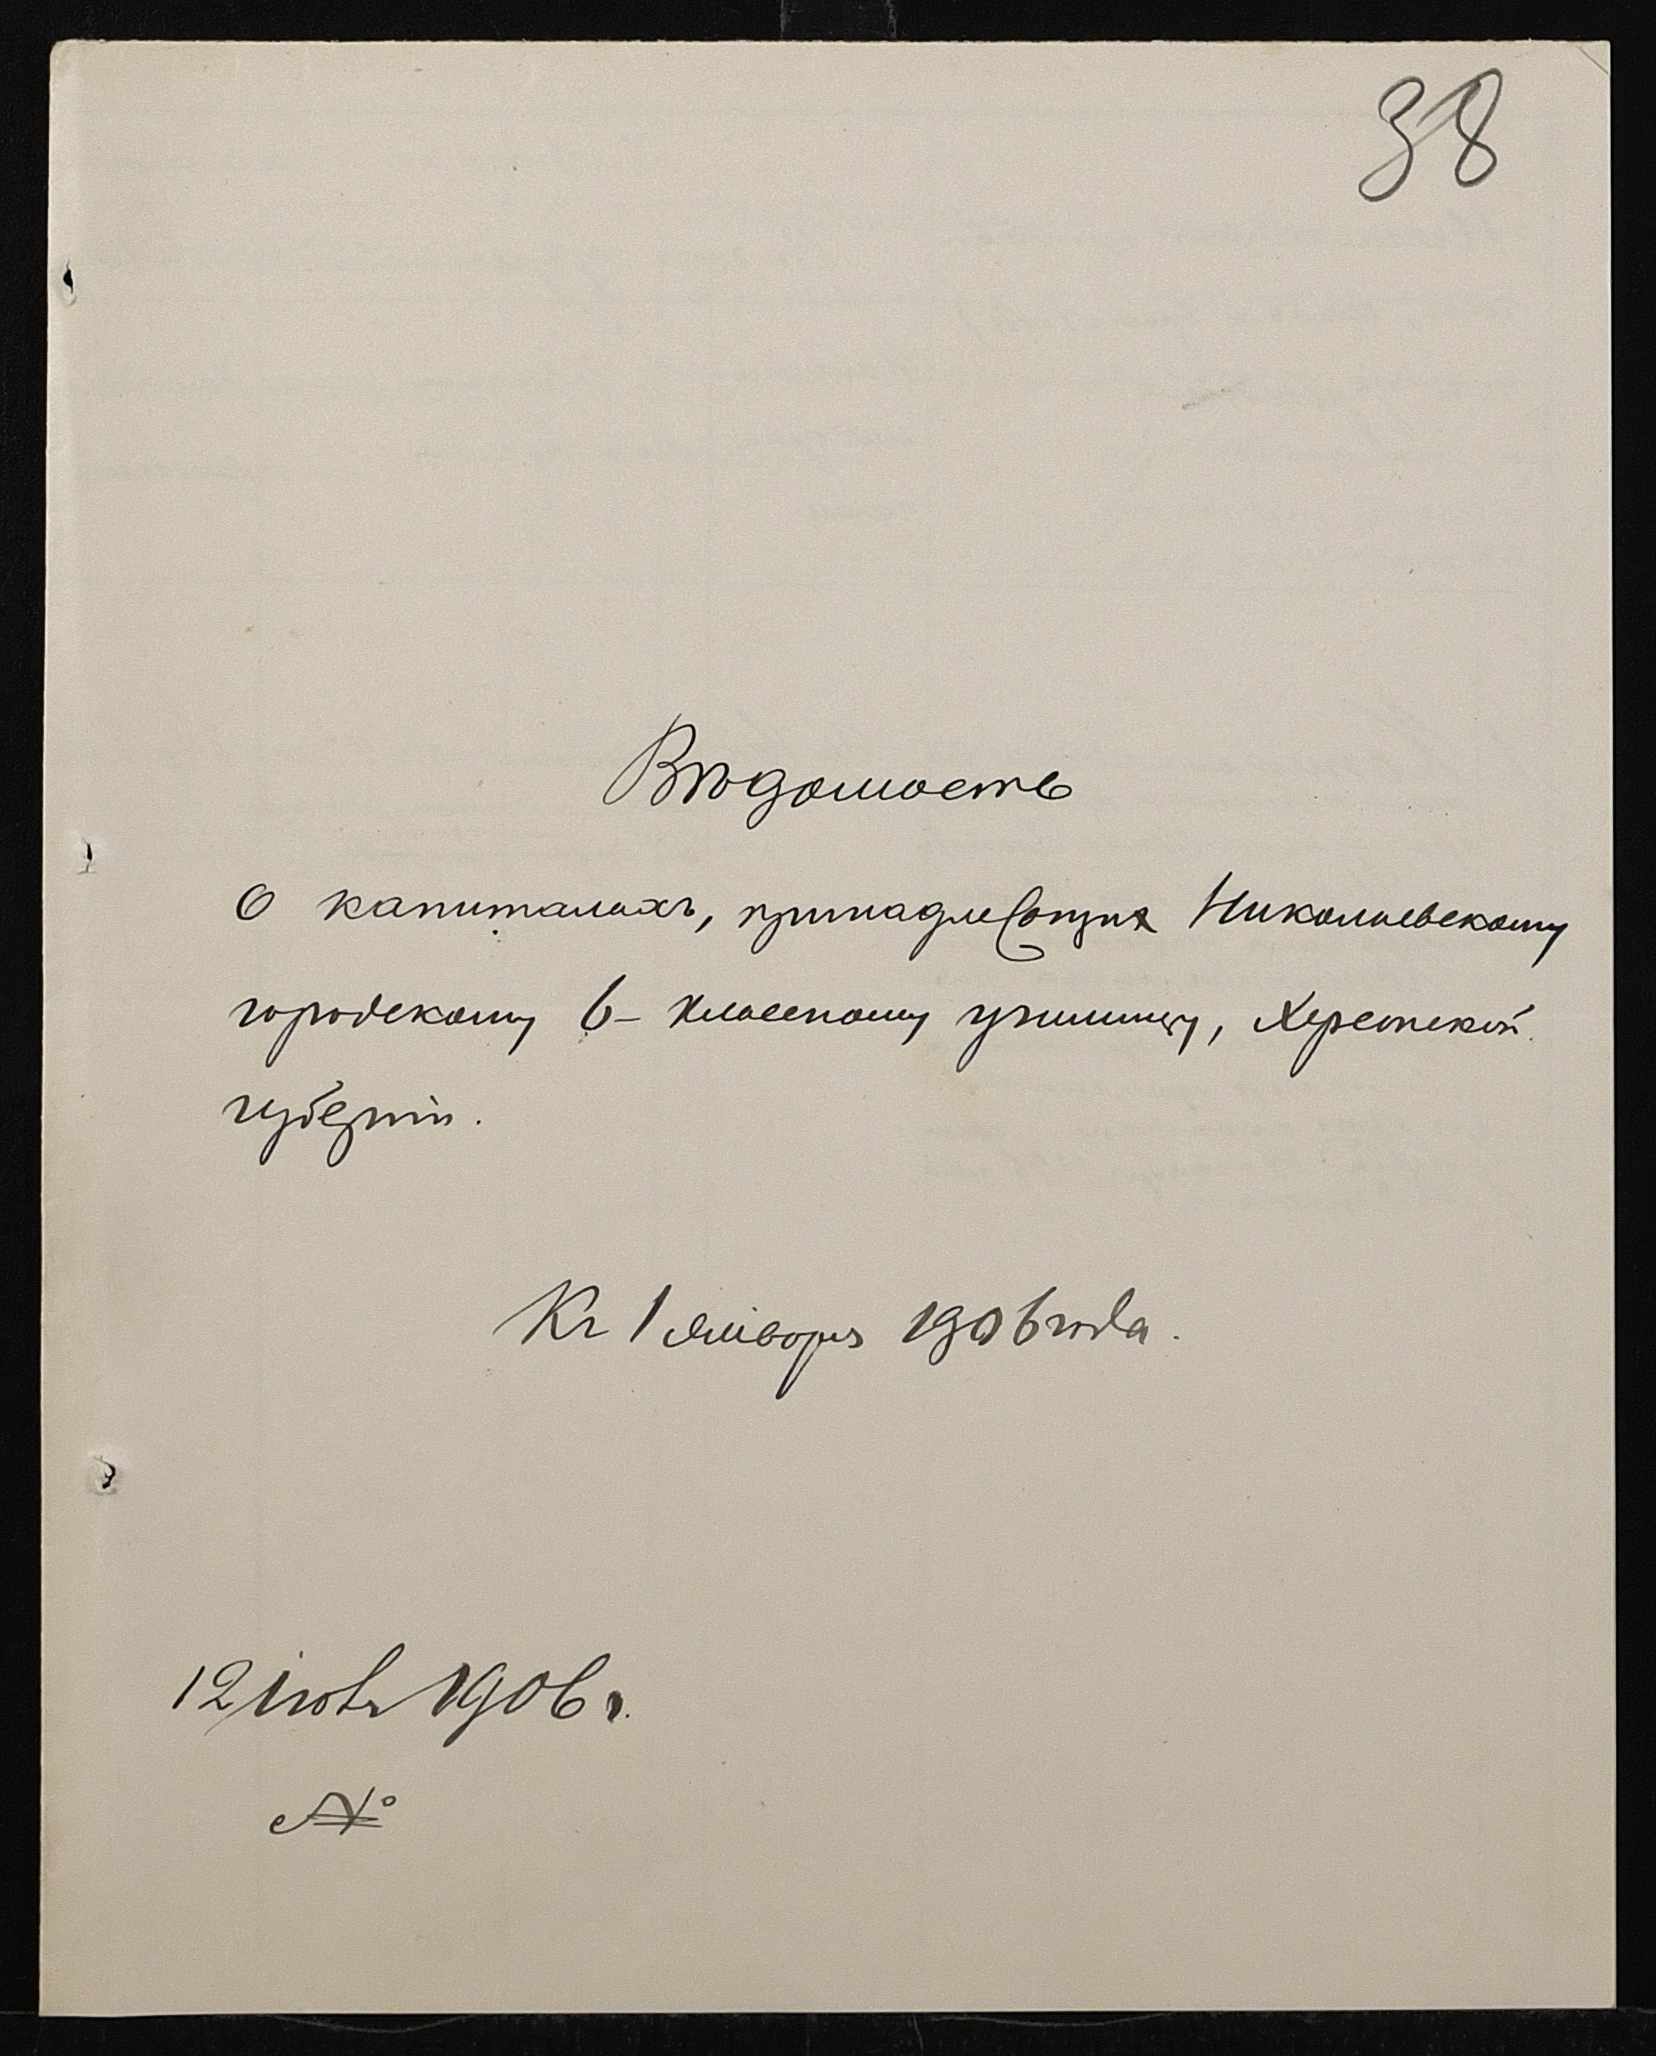 38
Вѣдомость
О капиталахъ, принадлежащихъ Николаевскому
городскому 6-классному училищу, Херсонской
губерніи.
Къ 1 января 1906 года.
12 1906 г.
№